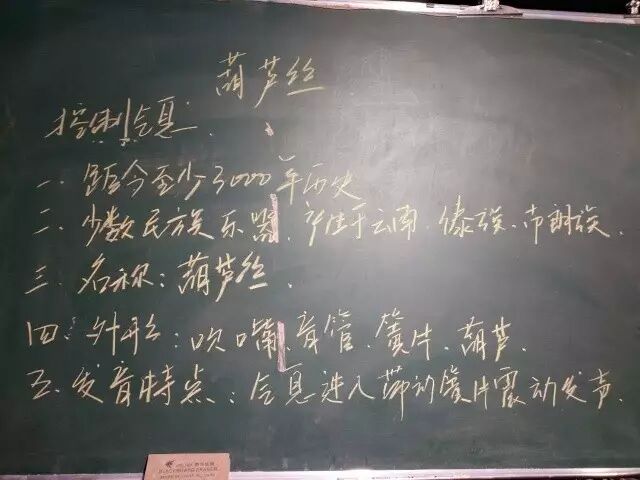 葫芦丝
控制气息.
一. 距今至少3000年历史
二. 少数民族乐器、产生于云南.傣族.布朗族.
三. 名称：葫芦丝.
四. 外形：吹嘴、音管、簧片.葫芦.
五.发音特点：气息进入带动簧片震动发声.